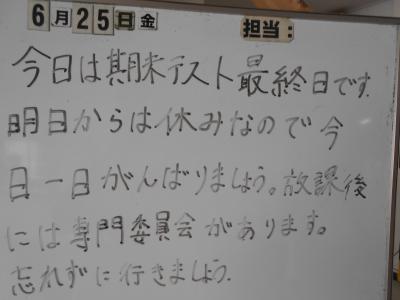 6月25日金 担当:
今日は期末テスト最終日です.
明日からは休みなので今
日一日がんばりましょう。放課後
には専門委員会があります。
忘れずに行きましょう.